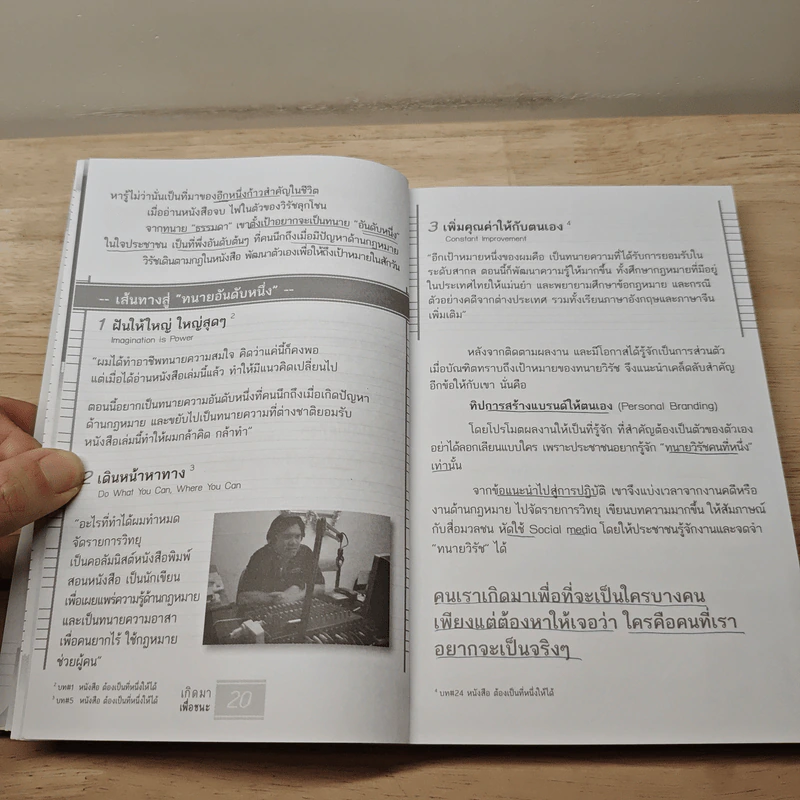 หารู้ไม่ว่านั่นเป็นที่มาของอีกหนึ่งก้าวสำคัญในชีวิต
เมื่ออ่านหนังสือจบ ไฟในตัวของวิรัชลุกโชน
จากทนาย "ธรรมดา" เขาตั้งเป้าอยากจะเป็นทนาย "อันดับหนึ่ง"
ในใจประชาชน เป็นที่พึ่งอันดับต้นๆ ที่คนนึกถึงเมื่อมีปัญหาด้านกฎหมาย
วิรัชเดินตามกฎในหนังสือ พัฒนาตัวเองเพื่อให้ถึงเป้าหมายในสักวัน
-- เส้นทางสู่ "ทนายอันดับหนึ่ง" --
1 ฝันให้ใหญ่ ใหญ่สุดๆ 2
Imagination is Power
"ผมได้ทำอาชีพทนายความสมใจ คิดว่าแค่นี้ก็คงพอ
แต่เมื่อได้อ่านหนังสือเล่มนี้แล้ว ทำให้มีแนวคิดเปลี่ยนไป
ตอนนี้อยากเป็นทนายความอันดับหนึ่งที่คนนึกถึงเมื่อเกิดปัญหา
ด้านกฎหมาย และขยับไปเป็นทนายความที่ต่างชาติยอมรับ
หนังสือเล่มนี้ทำให้ผมกล้าคิด กล้าทำ"
2 เดินหน้าหาทาง 3
Do What You Can, Where You Can
"อะไรที่ทำได้ผมทำหมด
จัดรายการวิทยุ
เป็นคอลัมนิสต์หนังสือพิมพ์
สอนหนังสือ เป็นนักเขียน
เพื่อเผยแพร่ความรู้ด้านกฎหมาย
และเป็นทนายความอาสา
เพื่อคนยากไร้ ใช้กฎหมาย
ช่วยผู้คน"
2 บท#1 หนังสือ ต้องเป็นที่หนึ่งให้ได้
3 บท#5 หนังสือ ต้องเป็นที่หนึ่งให้ได้
เกิดมา
เพื่อชนะ
20
3 เพิ่มคุณค่าให้กับตนเอง 4
Constant Improvement
"อีกเป้าหมายหนึ่งของผมคือ เป็นทนายความที่ได้รับการยอมรับใน
ระดับสากล ตอนนี้ก็พัฒนาความรู้ให้มากขึ้น ทั้งศึกษากฎหมายที่มีอยู่
ในประเทศไทยให้แม่นยำ และพยายามศึกษาข้อกฎหมาย และกรณี
ตัวอย่างคดีจากต่างประเทศ รวมทั้งเรียนภาษาอังกฤษและภาษาจีน
เพิ่มเติม"
หลังจากติดตามผลงาน และมีโอกาสได้รู้จักเป็นการส่วนตัว
เมื่อบัณฑิตทราบถึงเป้าหมายของทนายวิรัช จึงแนะนำเคล็ดลับสำคัญ
อีกข้อให้กับเขา นั่นคือ
ทิปการสร้างแบรนด์ให้ตนเอง (Personal Branding)
โดยโปรโมตผลงานให้เป็นที่รู้จัก ที่สำคัญต้องเป็นตัวของตัวเอง
อย่าได้ลอกเลียนแบบใคร เพราะประชาชนอยากรู้จัก "ทนายวิรัชคนที่หนึ่ง"
เท่านั้น
จากข้อแนะนำไปสู่การปฏิบัติ เขาจึงแบ่งเวลาจากงานคดีหรือ
งานด้านกฎหมาย ไปจัดรายการวิทยุ เขียนบทความมากขึ้น ให้สัมภาษณ์
กับสื่อมวลชน หัดใช้ Social media โดยให้ประชาชนรู้จักงานและจดจำ
"ทนายวิรัช" ได้
คนเราเกิดมาเพื่อที่จะเป็นใครบางคน
เพียงแต่ต้องหาให้เจอว่า ใครคือคนที่เรา
อยากจะเป็นจริงๆ
4 บท#24 หนังสือ ต้องเป็นที่หนึ่งให้ได้